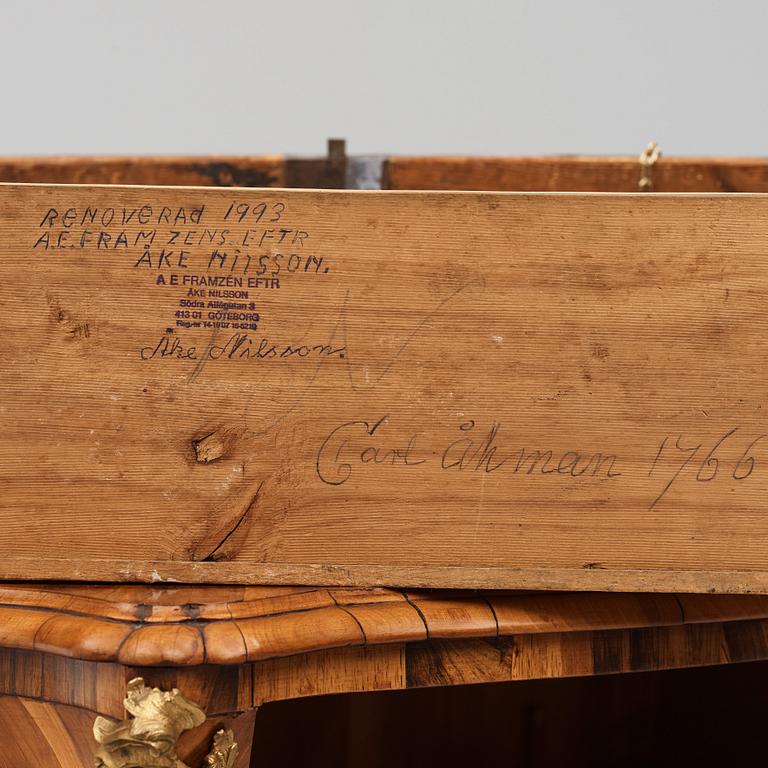 RENOVERAD 1993
A.E. FRAMZENS EFTR
ÅKE NILSSON.
A E FRAMZÉN EFTR
ÅKE NILSSON
Södra Allégatan 3
413 01 GÖTEBORG
Åke Nilsson.
Carl åkman 1766